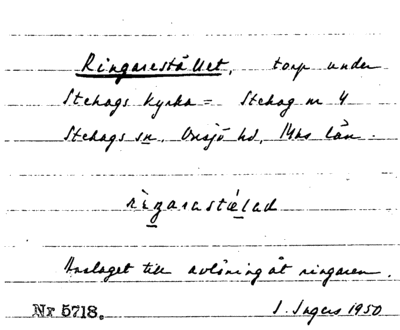 Ringarestället, torp under
Stehags kyrka = Stehag nr 4
Stehags sn. Onsjö hd, Mhs län.
riŋarastɛ́lad
Anslaget till avlöning åt ringaren.
Nr 5718. I. Ingers 1950